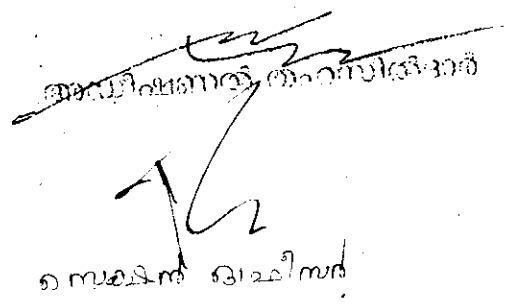 അഡീഷണൽ തഹസിൽദാർ
സെക്ഷൻ ഓഫീസർ